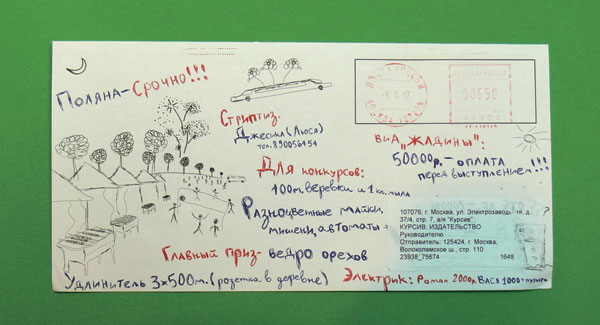 Поляна-Срочно!!!
Стриптиз-
Джесика (Люся)
тел. 890056454
Для конкурсов:
100 м. веревки и 1 км. мила
Разноцветные майки,
мишени, автоматы
Главный приз- ведро орехов
Удлинитель 3х500м. (розетка в деревне)
00650
ВИА „Жадины":
50000р.- оплата
перед выступлением!!!
107076, г. Москва, ул. Электрозавод
37/4, стр. 7, а/я "Курсив"
КУРСИВ, ИЗДАТЕЛЬСТВО
Руководителю
Отправитель: 125424, г. Москва,
Волоколамское ш., стр. 110
23938_75674 1646
Электрик: Роман 2000р, Вася 1000+пузырь